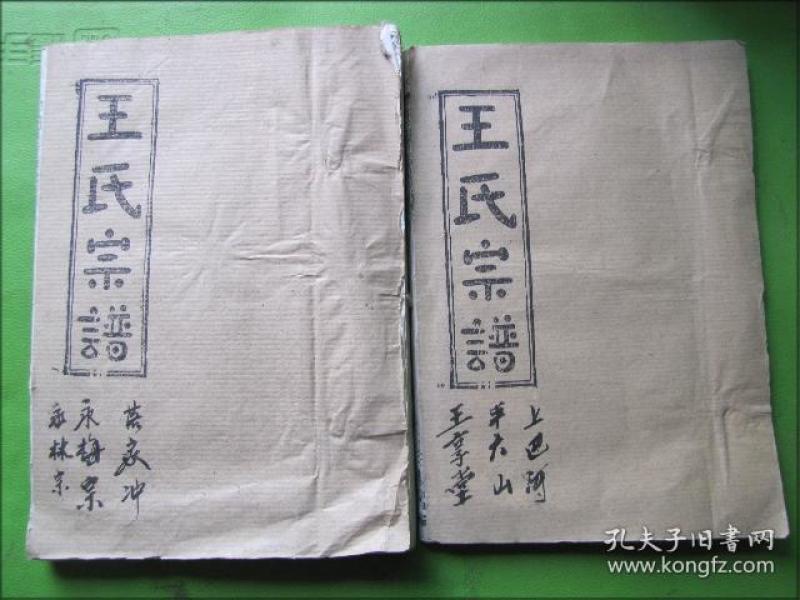 王氏宗譜
蔡家冲
永梅宗
永林宗
王氏宗譜
上巴河
半大山
王享堂
孔夫子旧书网
www.kongfz.com